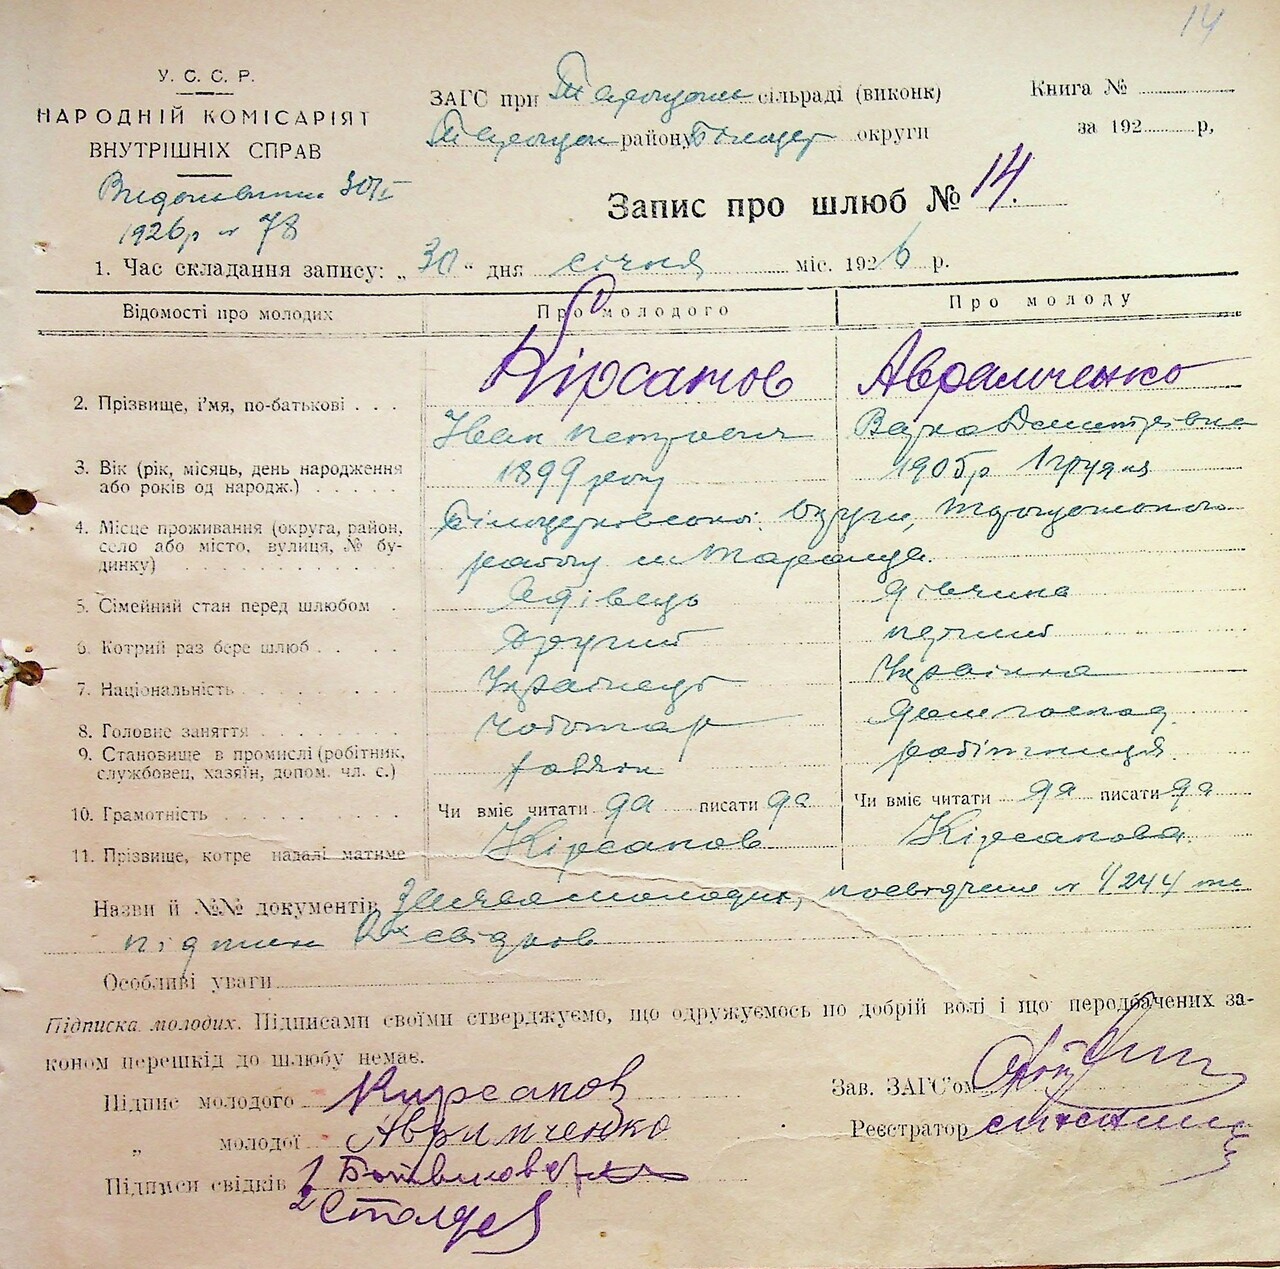 14
У. С. С. Р.
НАРОДНІЙ КОМІСАРІЯТ
ВНУТРІШНІХ СПРАВ
ЗАГС при сільраді (виконк)
району округи
Книга №
за 192 р,
1926 р № 78
Запис про шлюб № 14.
1. Час складання запису: „ 30 " дня січня міс. 1926 р.
Відомості про молодих Про молодого Про молоду
2. Прізвище, і'мя, по-батькові . . . Кірсанов Авраменко
Іван Петрович Варка Дмитрівна
3. Вік (рік, місяць, день народження 1899 року 1905 р 1 грудня
або років од народж.) . . . . .
4. Місце проживання (округа, район, Білоцерковської округи, Таращанського
село або місто, вулиця, № бу- району м Тараща.
динку)
5. Сімейний стан перед шлюбом . Вдівець дівчина
6. Котрий раз бере шлюб . . . . Другий перший
7. Національність Українець Українка
8. Головне заняття чоботар дом господ.
9. Становище в промислі (робітник, хазяїн робітниця
службовец, хазяїн, допом. чл. с.)
10. Грамотність Чи вміє читати да писати да Чи вміє читати да писати да
11. Прізвище, котре надалі матиме Кірсанов Кірсанова
Назви й №№ документів Заява молодих, посвідчення № 4244 та
підписи 2х свідків
Особливі уваги
Підписка молодих. Підписами своїми стверджуємо, що одружуємось по добрій волі і що перодбачених за-
коном перешкід до шлюбу немає.
Підпис молодого Кирсанов
Зав. ЗАГС'ом
„ молодої Аврамченко
Реєстратор
Підписи свідків 1
2